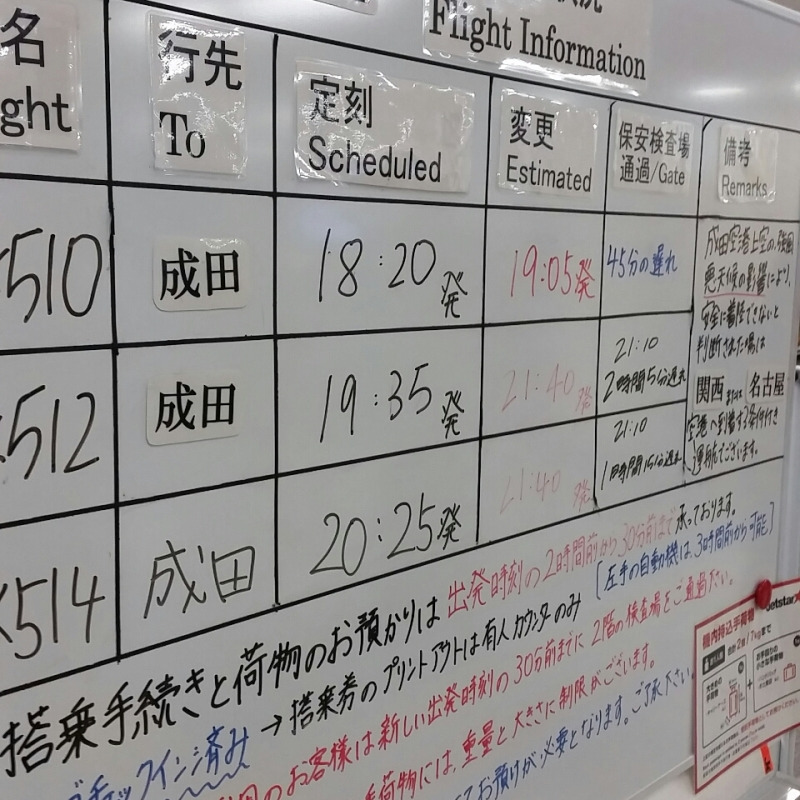 Flight Information
名
ght
行先
To
定刻
Scheduled
変更
Estimated
保安検査場
通過/Gate
備考
Remarks
510
成田
18:20発
19:05発
45分の遅れ
成田空港上空の強風
悪天候の影響により、
安全に着陸できないと
判断された場合は
関西 または 名古屋
空港へ到着する条件付き
運航でございます。
512
成田
19:35発
21:40発
21:10
2時間5分遅れ
514
成田
20:25発
21:40発
21:10
1時間15分遅れ
搭乗手続きと荷物のお預かりは 出発時刻の2時間前から30分前まで承っております。
チェックイン済み → 搭乗券のプリントアウトは有人カウンターのみ [左手の自動機は、3時間前から可能]
のお客様は新しい出発時刻の30分前までに 2階の検査場をご通過下さい。
手荷物には、重量と大きさに制限がございます。
お預けが必要となります。ご了承下さい
Jetstar
機内持込手荷物
合計2個/7kgまで